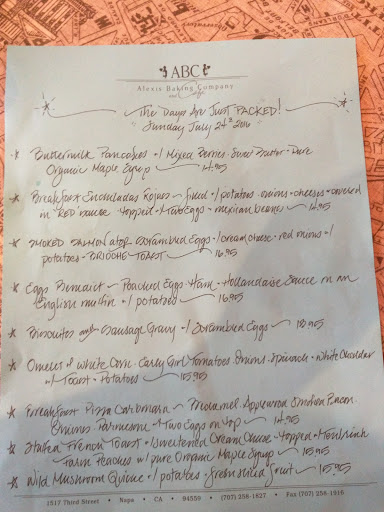 ABC
Alexis Baking Company
and Cafe
The Days Are Just PACKED!
Sunday July 24th 2016
* Buttermilk Pancakes w/ Mixed Berries - Sweet Butter - Pure
Organic Maple Syrup 14.95
* Breakfast Enchiladas Rojas - filled w/ potatoes - onions - cheeses - covered
in "RED" sauce topped w/ Two Eggs - mexican beans 14.95
* SMOKED SALMON atop scrambled Eggs w/ cream cheese - red onions w/
potatoes - BRIOCHE TOAST 16.95
* Eggs Benedict - Poached Eggs - Ham - Hollandaise Sauce on an
English muffin w/ potatoes 16.95
* Biscuits and Sausage Gravy w/ Scrambled Eggs
* Omelet of White Corn - Early Girl Tomatoes - Onions - Spinach - White Cheddar
w/ Toast - Potatoes 15.95
* Breakfast Pizza Carbonara - Applewood Smoked Bacon
Onions - Parmesan w/ Two Eggs on top 14.95
* Stuffed French Toast w/ Sweetened Cream Cheese - topped w/
Farm Peaches w/ pure Organic Maple Syrup 15.95
* Wild Mushroom Quiche w/ potatoes - fresh sliced fruit 15.95
1517 Third Street • Napa • CA • 94559 • (707) 258-1827 • Fax (707) 258-1916